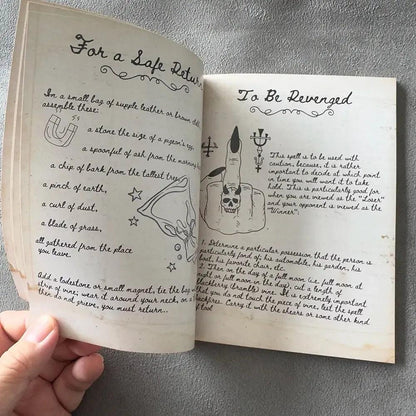 For a Safe Return
In a small bag of supple leather or brown cloth
assemble these:
a stone the size of a pigeon's egg,
a spoonful of ash from the morning
a chip of bark from the tallest tree,
a pinch of earth,
a curl of dust,
a blade of grass,
all gathered from the place
you leave.
Add a lodestone or small magnet, tie the bag
strip of vine, wear it around your neck, on a
then do not grieve, you must return..
To Be Revenged
This spell is to be used with
caution, because, it is rather
important to decide at which point
in time you will want it to take
hold. This is particularly good for
when you are viewed as the "Loser"
and your opponent is viewed as the
"Winner":
1. Determine a particular possession that the person is
particularly fond of; his automobile, his garden, his
boat, his favorite chair, etc.
2. Then on the day of a full moon (i.e. full moon at
night or full moon in the day), cut a length of
blackberry (bramble) vine. It is extremely important
that you do not touch the piece of vine, lest the spell
backfires. Carry it with the shears or some other kind
of tool